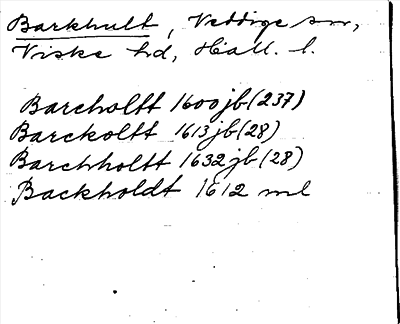 Barkhult, Veddige sn,
Viske hd, Hall. l.
Barcholtt 1600 jb (237)
Barckoltt 1613 jb (28)
Barchholtt 1632 jb (28)
Backholdt 1612 ml